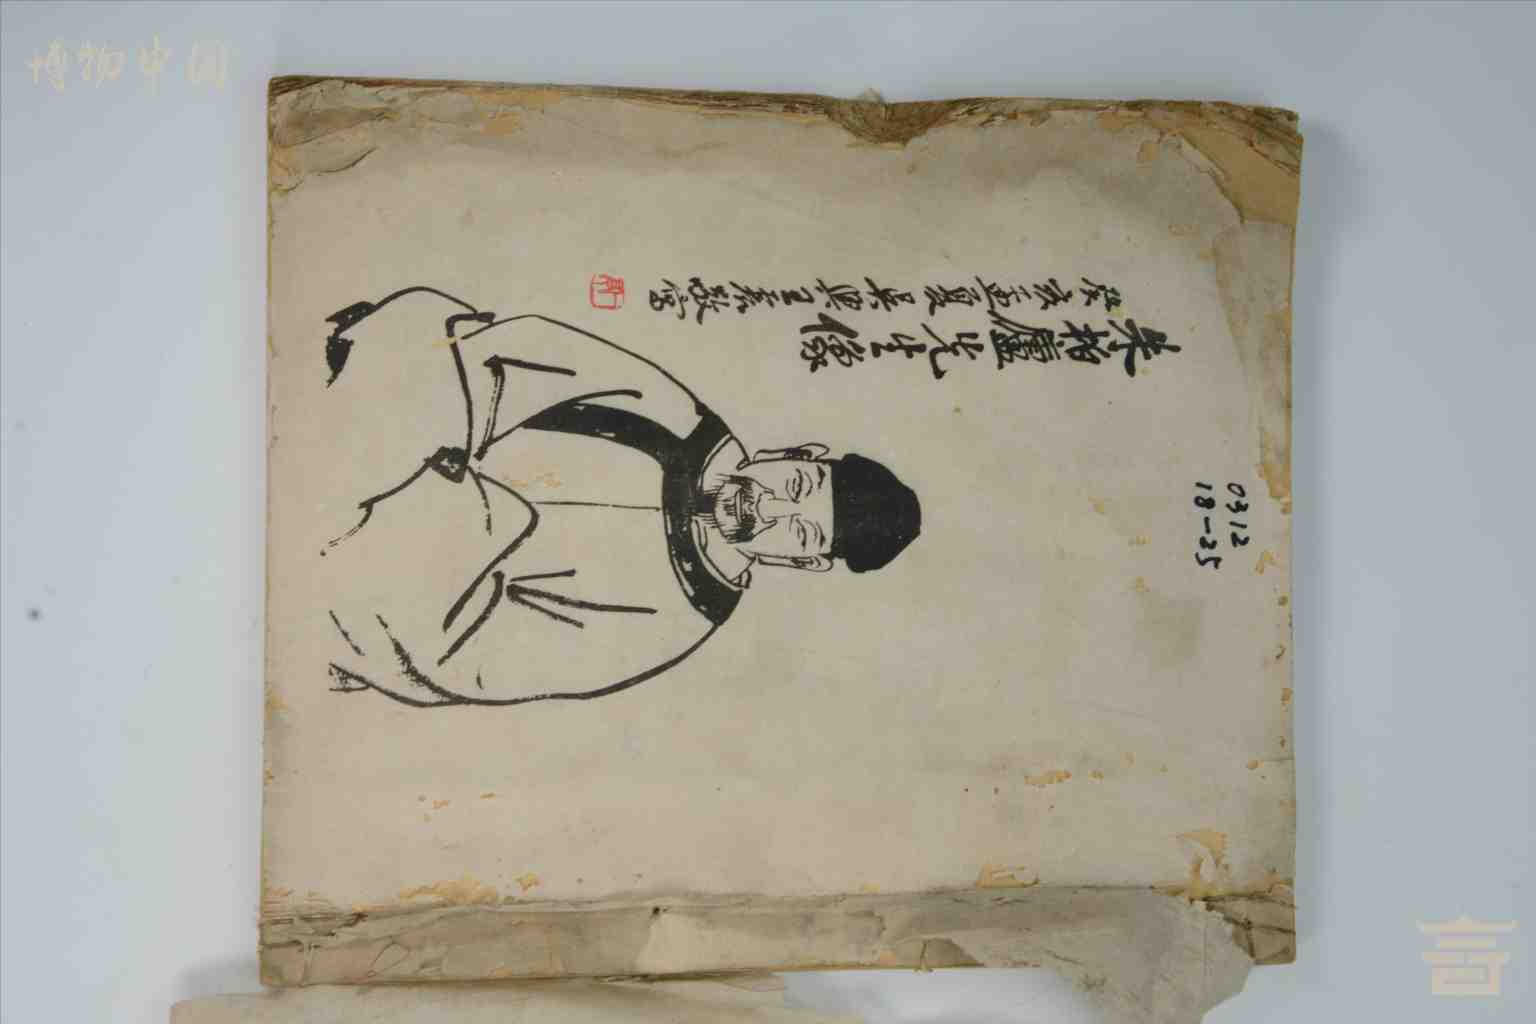 博物中国
朱柏廬先生像
癸亥孟夏吳興王震敬寫
0312
18-25